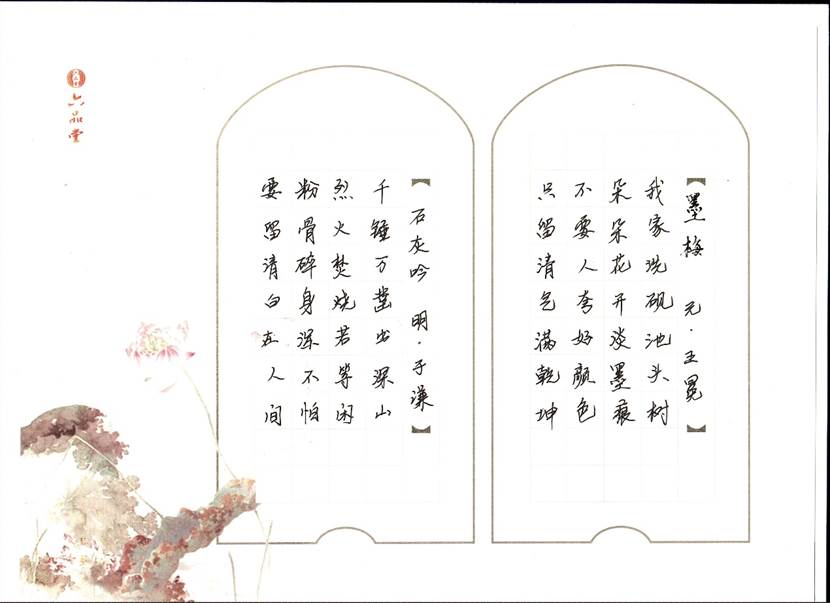 【墨梅 元·王冕】
我家洗砚池头树
朵朵花开淡墨痕
不要人夸好颜色
只留清气满乾坤
【石灰吟 明·于谦】
千锤万凿出深山
烈火焚烧若等闲
粉骨碎身深不怕
要留清白在人间
六品堂